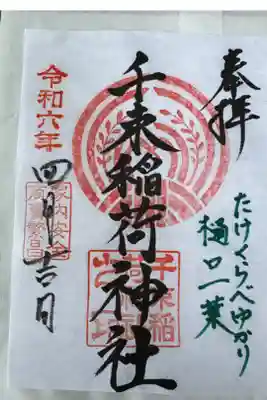 奉拝
たけくらべゆかり
樋口一葉
千束稲荷神社
令和六年
四月吉日
家内安全
商売繁昌